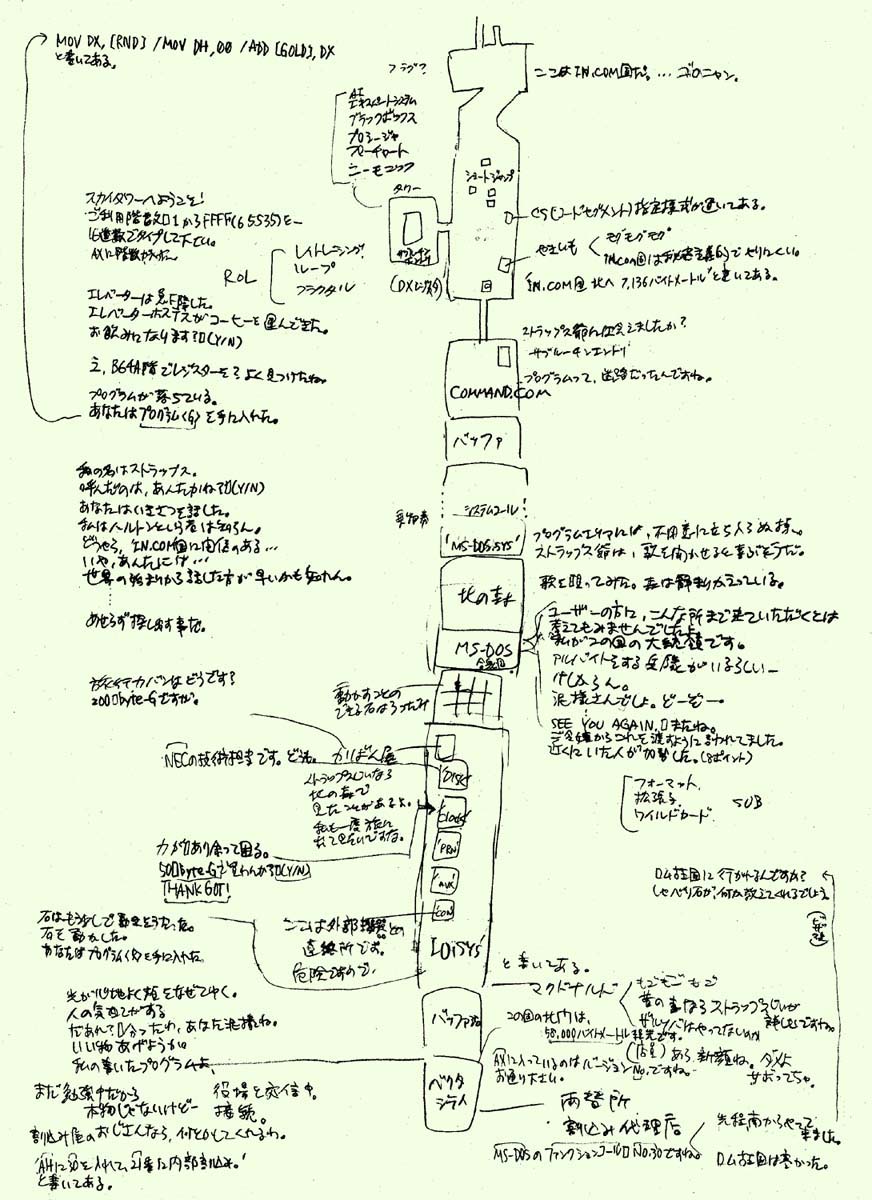 MOV DX, [RND] /MOV DH,00 /ADD [GOLD], DX
と書いてある。
フラグ?
ここはIN.COM国だ。…ゴロニャン。
AI
エキスパートシステム
ブラックボックス
プロシージャ
フローチャート
ニーモニック
タワー
ショートジャンプ
(DXレジスタ)
CS(コードセグメント)指定様式が書いてある。
やきいも
モグモグモグ
IN.COM国 北へ 7,136バイトメートル と書いてある。
スカイタワーへようこそ!
ご利用階数□1からFFFF(65535)を—
16進数でタイプして下さい。
AXに階数
ROL
レイトレーシング
ループ
フラクタル
エレベーターは急下降した。
エレベーターホステスがコーヒーを運んできた。
お飲みになります?□(Y/N)
え、B64A階でレジスターを?よく見つけたね。
プログラムが落ちている。
あなたはプログラム(G)を手に入れた。
ストラップス爺には会えましたか?
サブルーチンエンドリ
プログラムって、迷路だったんですね。
COMMAND.COM
バッファ
システムコール
'MS-DOS.SYS'
プログラムエリアには、不用意に立ち入らぬ様。
ストラップス爺は、歌を聞かせると喜ぶそうだ。
私の名はストラップス。
呼んだのは、あんたかね?□(Y/N)
あなたはいきさつを話した。
私はヘルトンという者は知らん。
どうやら、IN.COM国に関係のある…
いや、あんたには…
世界の始まりから話した方が早いかも知れん。
あせらず探し出す事だ。
北の森
歌を唄ってみた。森は静まりかえっている。
MS-DOS
ユーザーの方に、こんな所まで来ていただくとは
考えてもみませんでしたよ。
私がこの国の大統領です。
アルバイトをする兵隊がいるらしい—
けしからん。
泥様さんでしょ。どーぞー
SEE YOU AGAIN.□またね。
ご主人様からこれを渡すように言われてました。
近くにいた人が加勢した。(8ポイント)
フォーマット
拡張子
ワイルドカード
SUB
旅行カバンはどうです?
200□byte-Gですが。
動かすことの
できる石は3つだけ
NECの技術担当です。どうも。
かばん屋
ストラップスじいなら
北の森で
見たことがあるよ。
私も一度旅に
出て見たいですな。
'DISK'
'CLOCK'
'PRN'
'AUX'
'CON'
IO.SYS
力が□あり余って困る。
50□byte-Gで買わんか?□(Y/N)
THANK GOT!
石はもう少しで動きそうだった。
石を動かした。
あなたはプログラム(タ)を手に入れた。
ここは外部機器との
連絡所です。
危険ですので
D.M.王国に行かれるんですか?
しゃべり石が、何か教えてくれるでしょう。
と書いてある。
マクドナルド
もごもごもご
昔の事ならストラップスじいが
詳しいですわね。
光が心地よく頬をなぜてゆく。
人の気配がする
だあれ?□分ったわ、あなた泥様ね。
いい物あげようか。
私の書いたプログラムよ、
まだ勉強中だから
本物じゃないけどー
役場と交信中。
接続。
割込み屋のおじさんなら、何とかしてくれるわ。
'AHに30を入れて、21番に内部割込み。'
と書いてある。
バッファ
この国の北門は、
58,000バイトメートル程先です。
AXに入っているのはバージョンNo.ですね。
お通り下さい。
(店員)
あら、新顔ね。ダメよ
サボっちゃ。
ベクタ
シティ
両替所
割込み代理店
MS-DOSのファンクションコール□No.30ですね。
先程南からやって
来ました。
D.M.王国は寒かった。